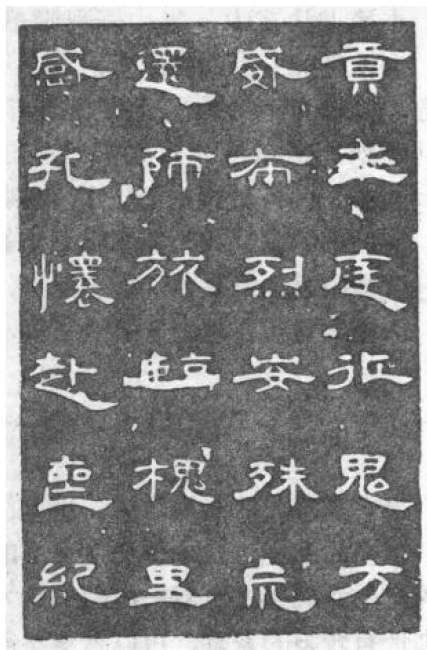 貢王庭征鬼方
威布烈安殊巟
還師旅臨槐里
感孔懷赴喪紀